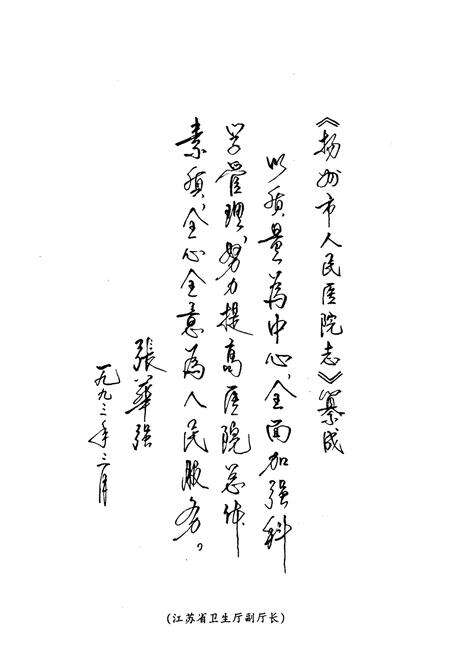 《扬州市人民医院志》纂成
以质量为中心、全面加强科
学管理，努力提高医院总体
素质，全心全意为人民服务。
張華强
一九九三年三月
(江苏省卫生厅副厅长)